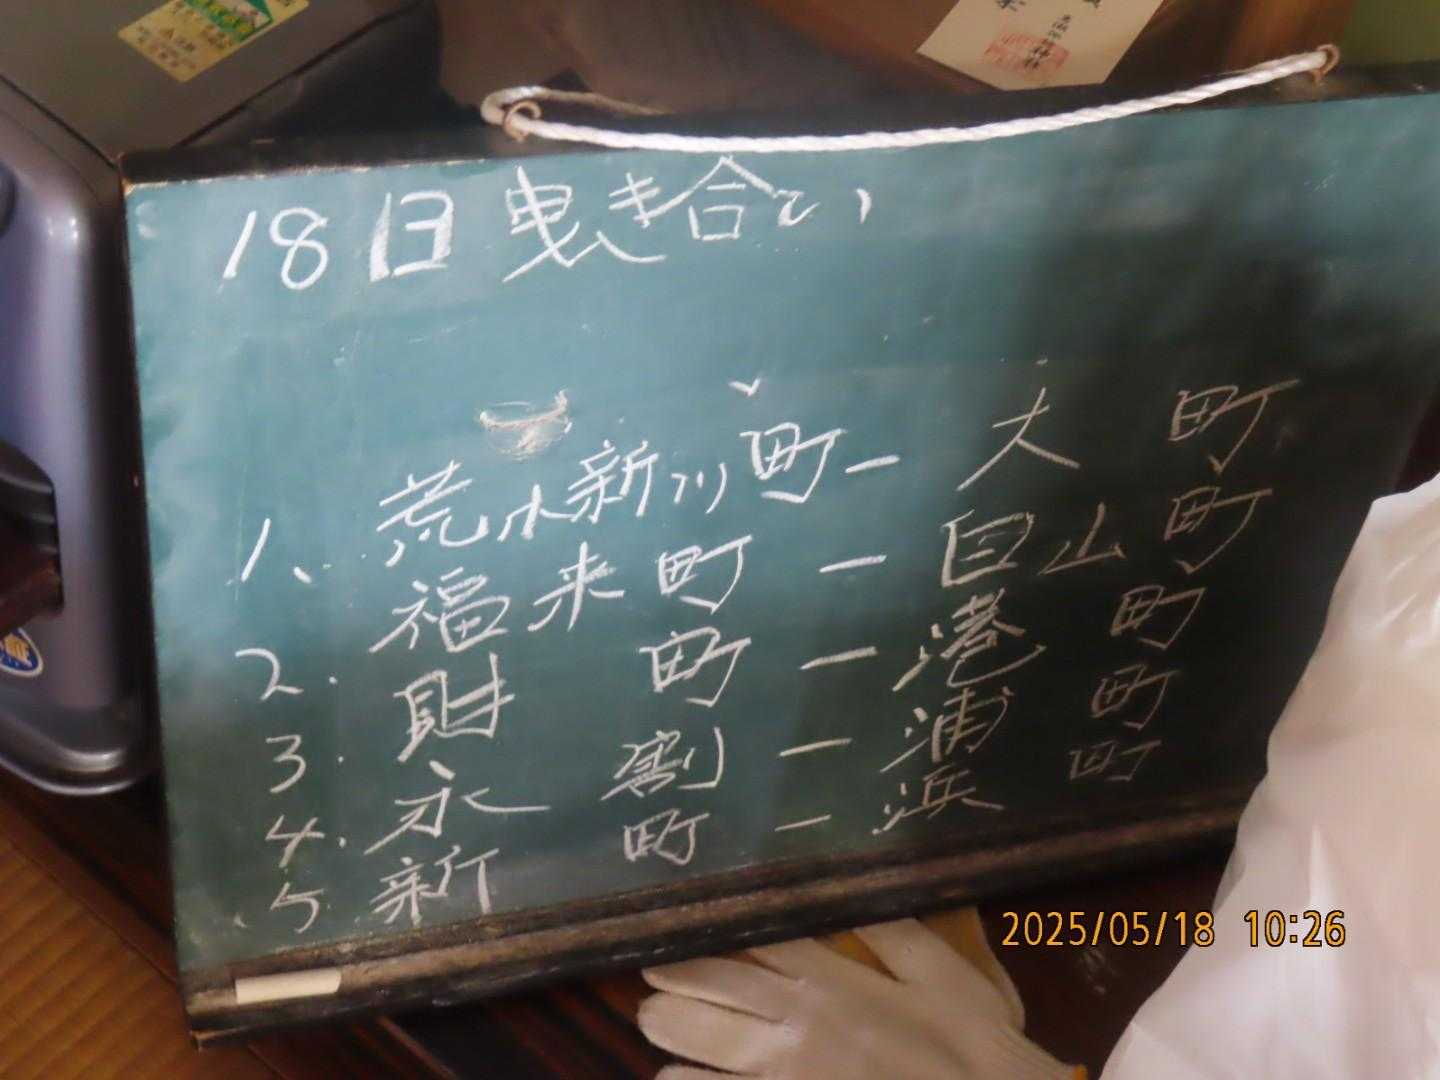 18日 曳き合い
1、荒木新川町ー大町
2.福来町ー白山町
3.財町ー港町
4.永割ー浦町
5 新町ー浜町
2025/05/18 10:26